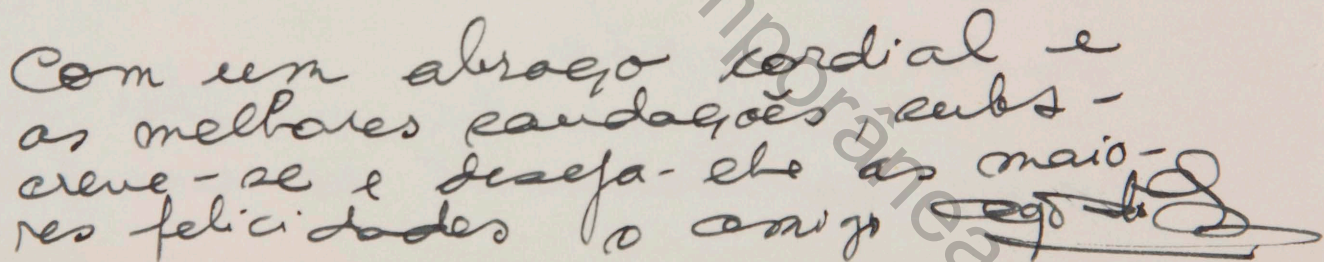 Com um abraço cordial e
as melhores saudações, subs-
creve-se e deseja-lhe as maio-
res felicidades o amigo